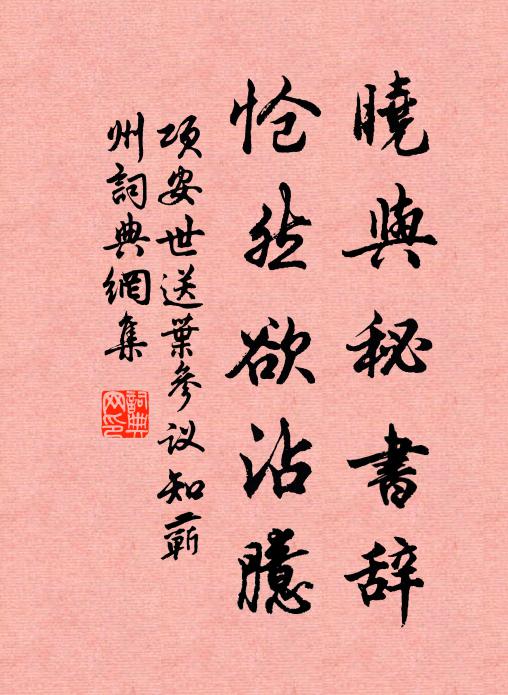 曉與秘書辞
怆然欲沾臆
项安世送葉參议知蕲
州詞典網集
詞典网印